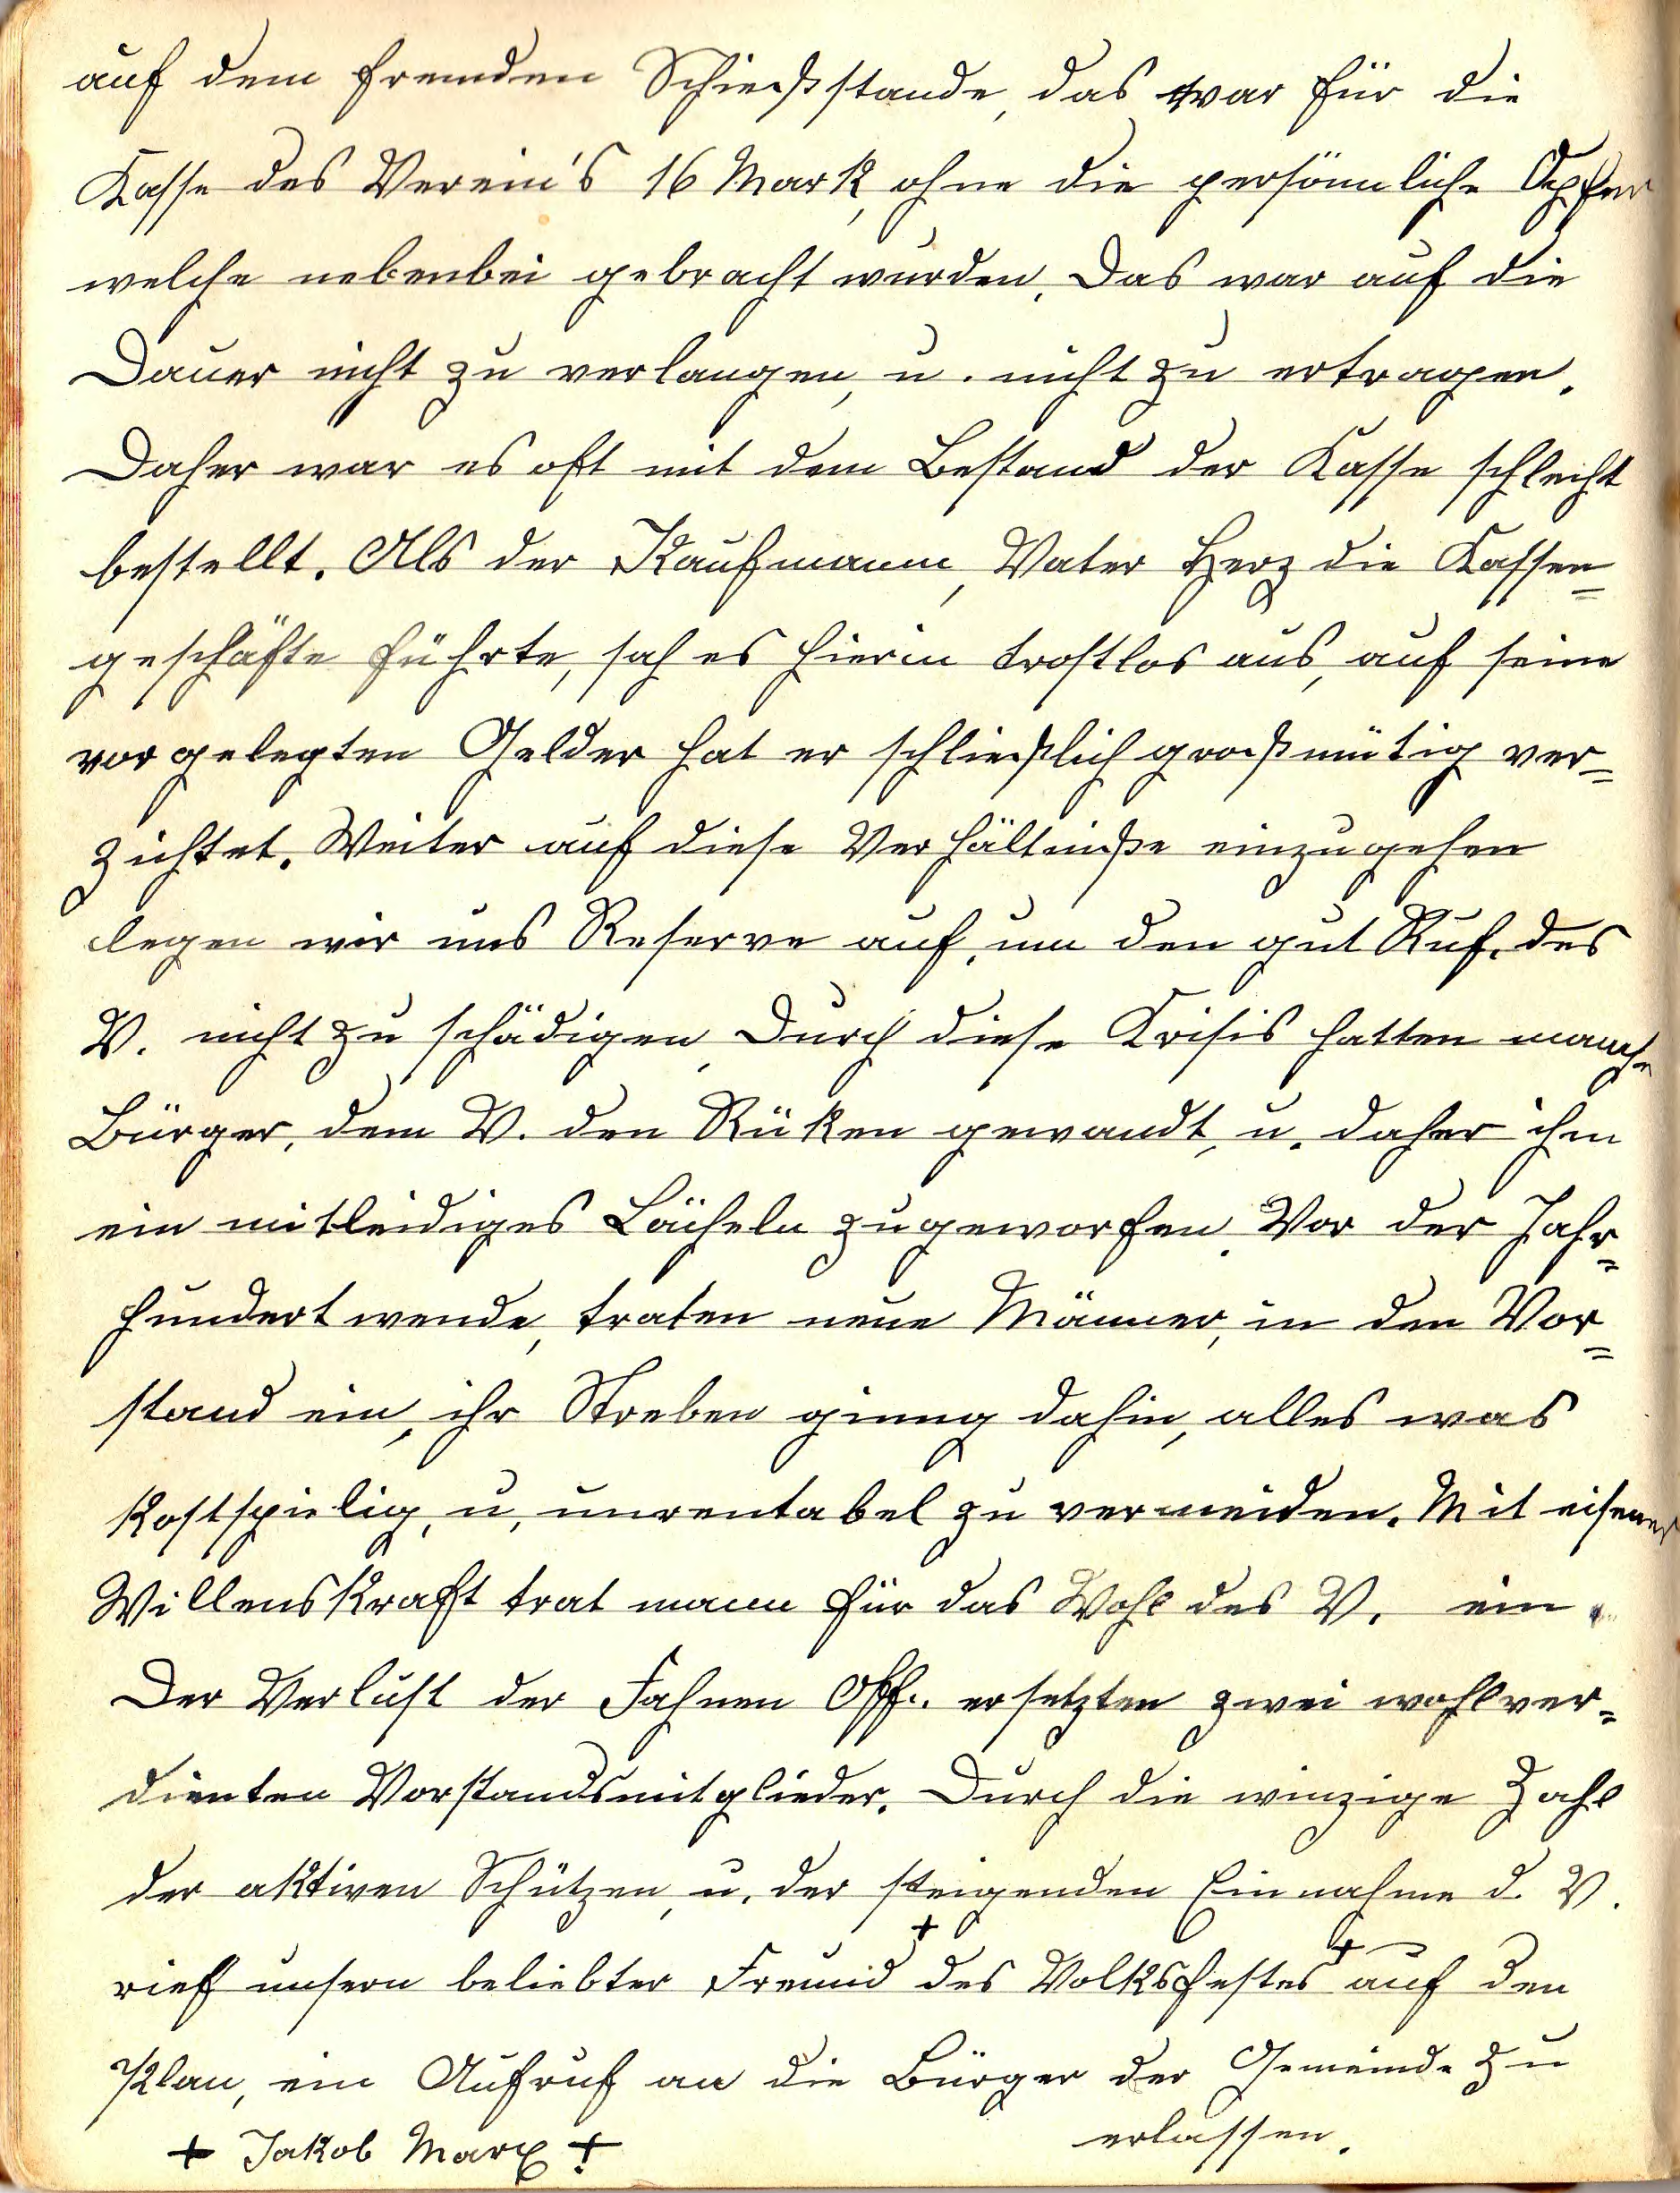 auf dem fremden Schießstande, das war für die
Kasse des Verein's 16 Mark, ohne die persönliche Opfer
welche nebenbei gebracht wurden. Das war auf die
Dauer nicht zu verlangen, u. nicht zu ertragen.
Daher war es oft mit dem Bestand der Kasse schlecht
bestellt. Als der Kaufmann, Vater Herz die Kassen=
geschäfte führte, sah es hierin trostlos aus, auf seine
vorgelegten Gelder hat er schließlich großmütig ver=
zichtet. Weiter auf diese Verhältniße einzugehen
legen wir uns Reserve auf, um den gut Ruf. des
V. nicht zu schädigen. Durch diese Krisis hatten manche
Bürger, dem V. den Rüken gewandt, u. daher ihm
ein mitleidiges Lächeln zugeworfen. Vor der Jahr=
hundertwende, traten neue Männer, in den Vor=
stand ein, ihr Streben ginng dahin, alles was
kostspielig, u. unrentabel zu vermeiden. Mit eiserner
Willenskraft trat mann für das Wohl des V. ein.
Der Verlust der Fahnen Off.. ersetzten zwei wohlver=
dienten Vorstandsmitglieder. Durch die winzige Zahl
der aktiven Schützen, u. der steigenden Einnahme d. V.
rief unsern beliebter Freund + des Volksfestes + auf den
Plan, ein Aufruf an die Bürger der Gemeinde zu
erlassen.
+ Jakob Marx +